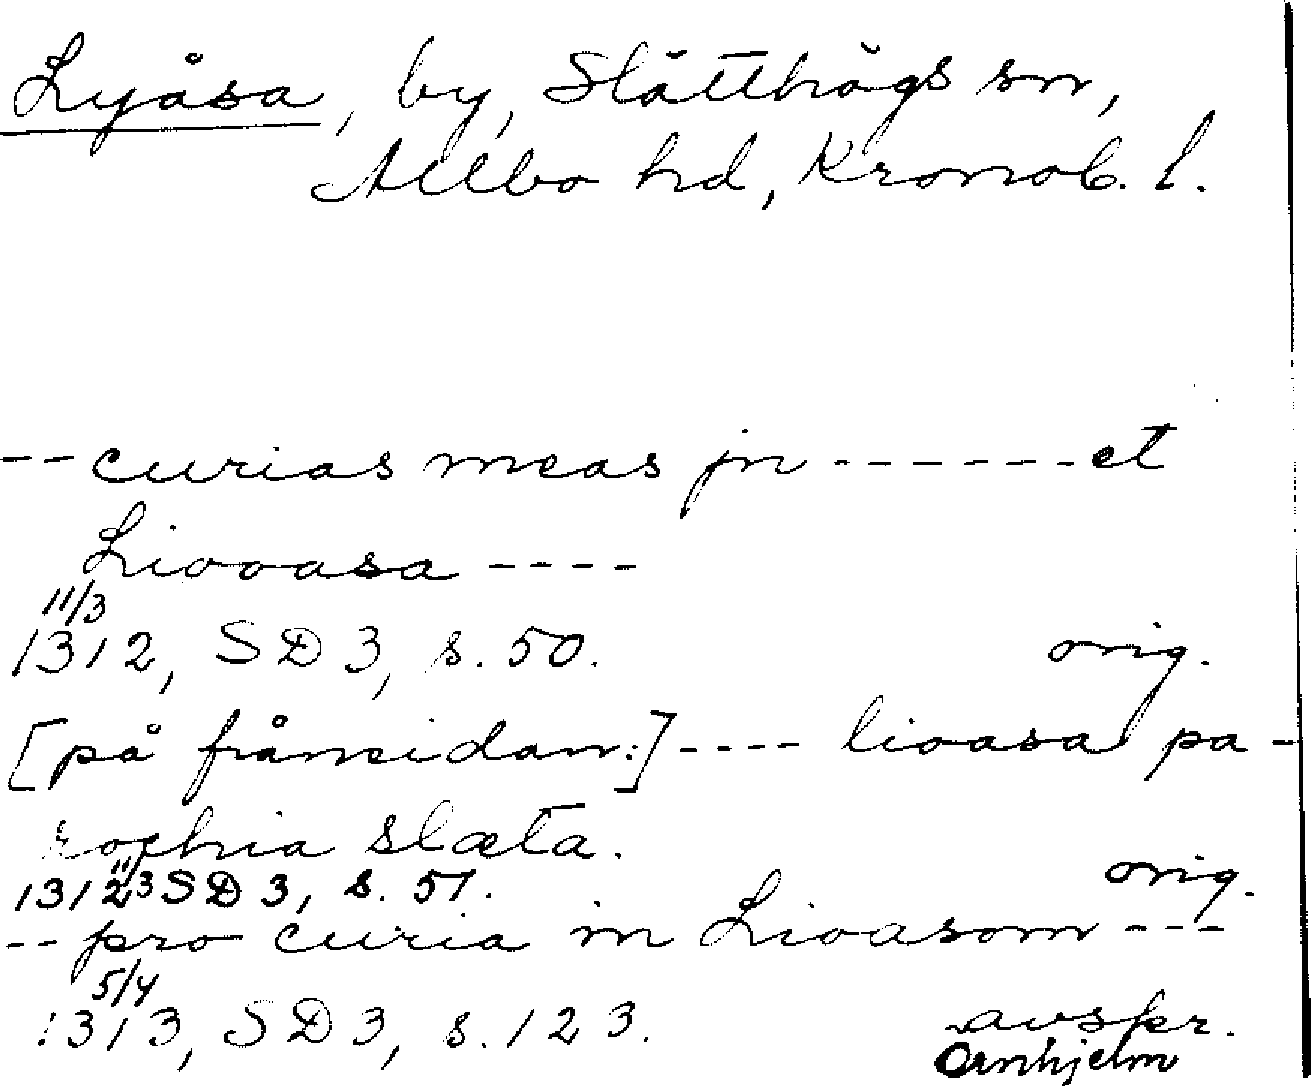 Lyåsa, by, Slätthögs sn,
Allbo hd, Kronob. l.
-- curias meas jn ------- et
Liooasa ----
11/3
1312, SD 3, s. 50. orig.
[på frånsidan:] ---- lioasa pa-
rochia slæta.
1312 11/3 SD 3, s. 51. orig.
-- pro curia in Lioasom ---
5/4
1313, SD 3, s. 123. avskr.
Örnhjelm